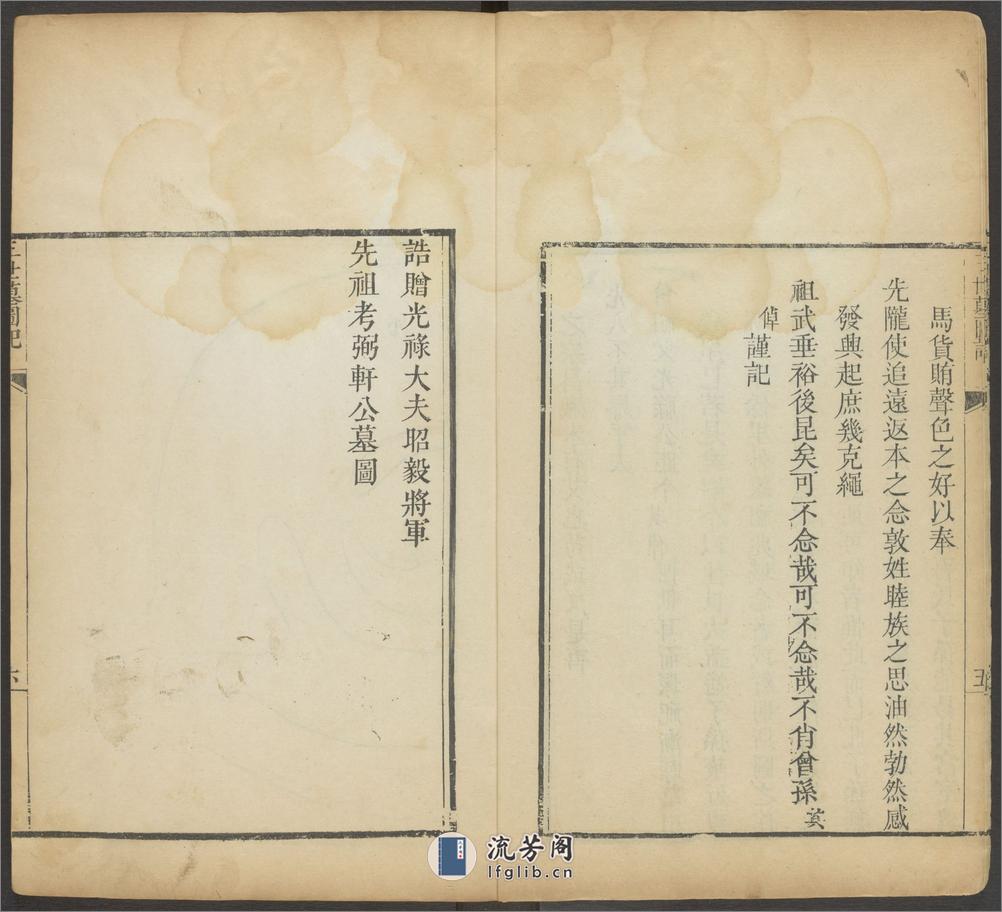 馬貨賄聲色之好以奉
先隴使追遠返本之念敦姓睦族之思油然勃然感
發興起庶幾克繩
祖武垂裕後昆矣可不念哉可不念哉不肖曾孫
倬謹記
五
誥贈光祿大夫昭毅將軍
先祖考弼軒公墓圖
三世墓圖記
六
流芳阁
lfglib.cn